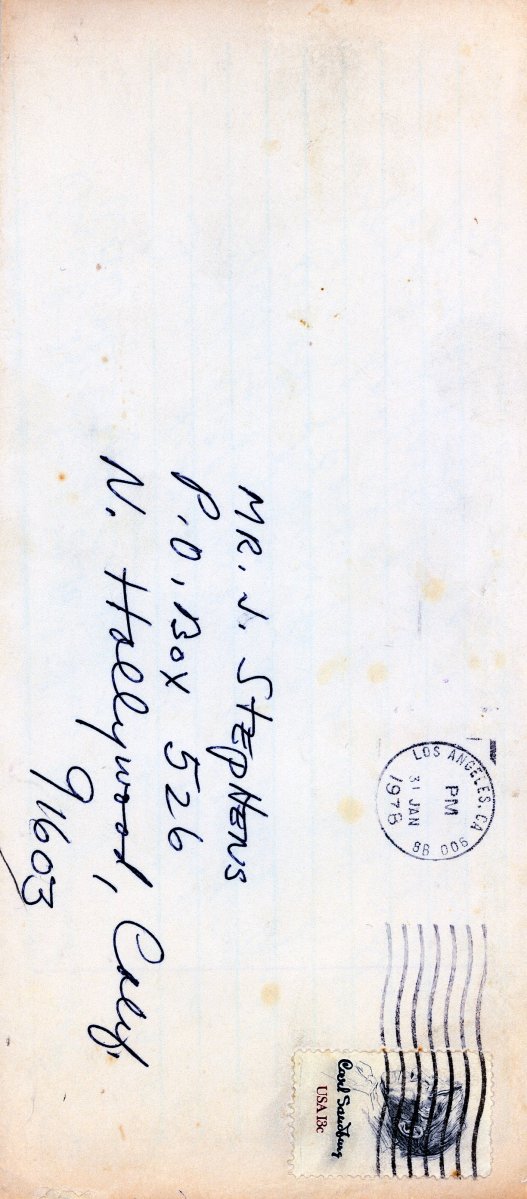 LOS ANGELES, CA
PM
31 JAN
1978
BB 006
Carl Sandburg
USA 13c
MR. J. STEPHENS
P.O. Box 526
N. Hollywood, Calif.
91603